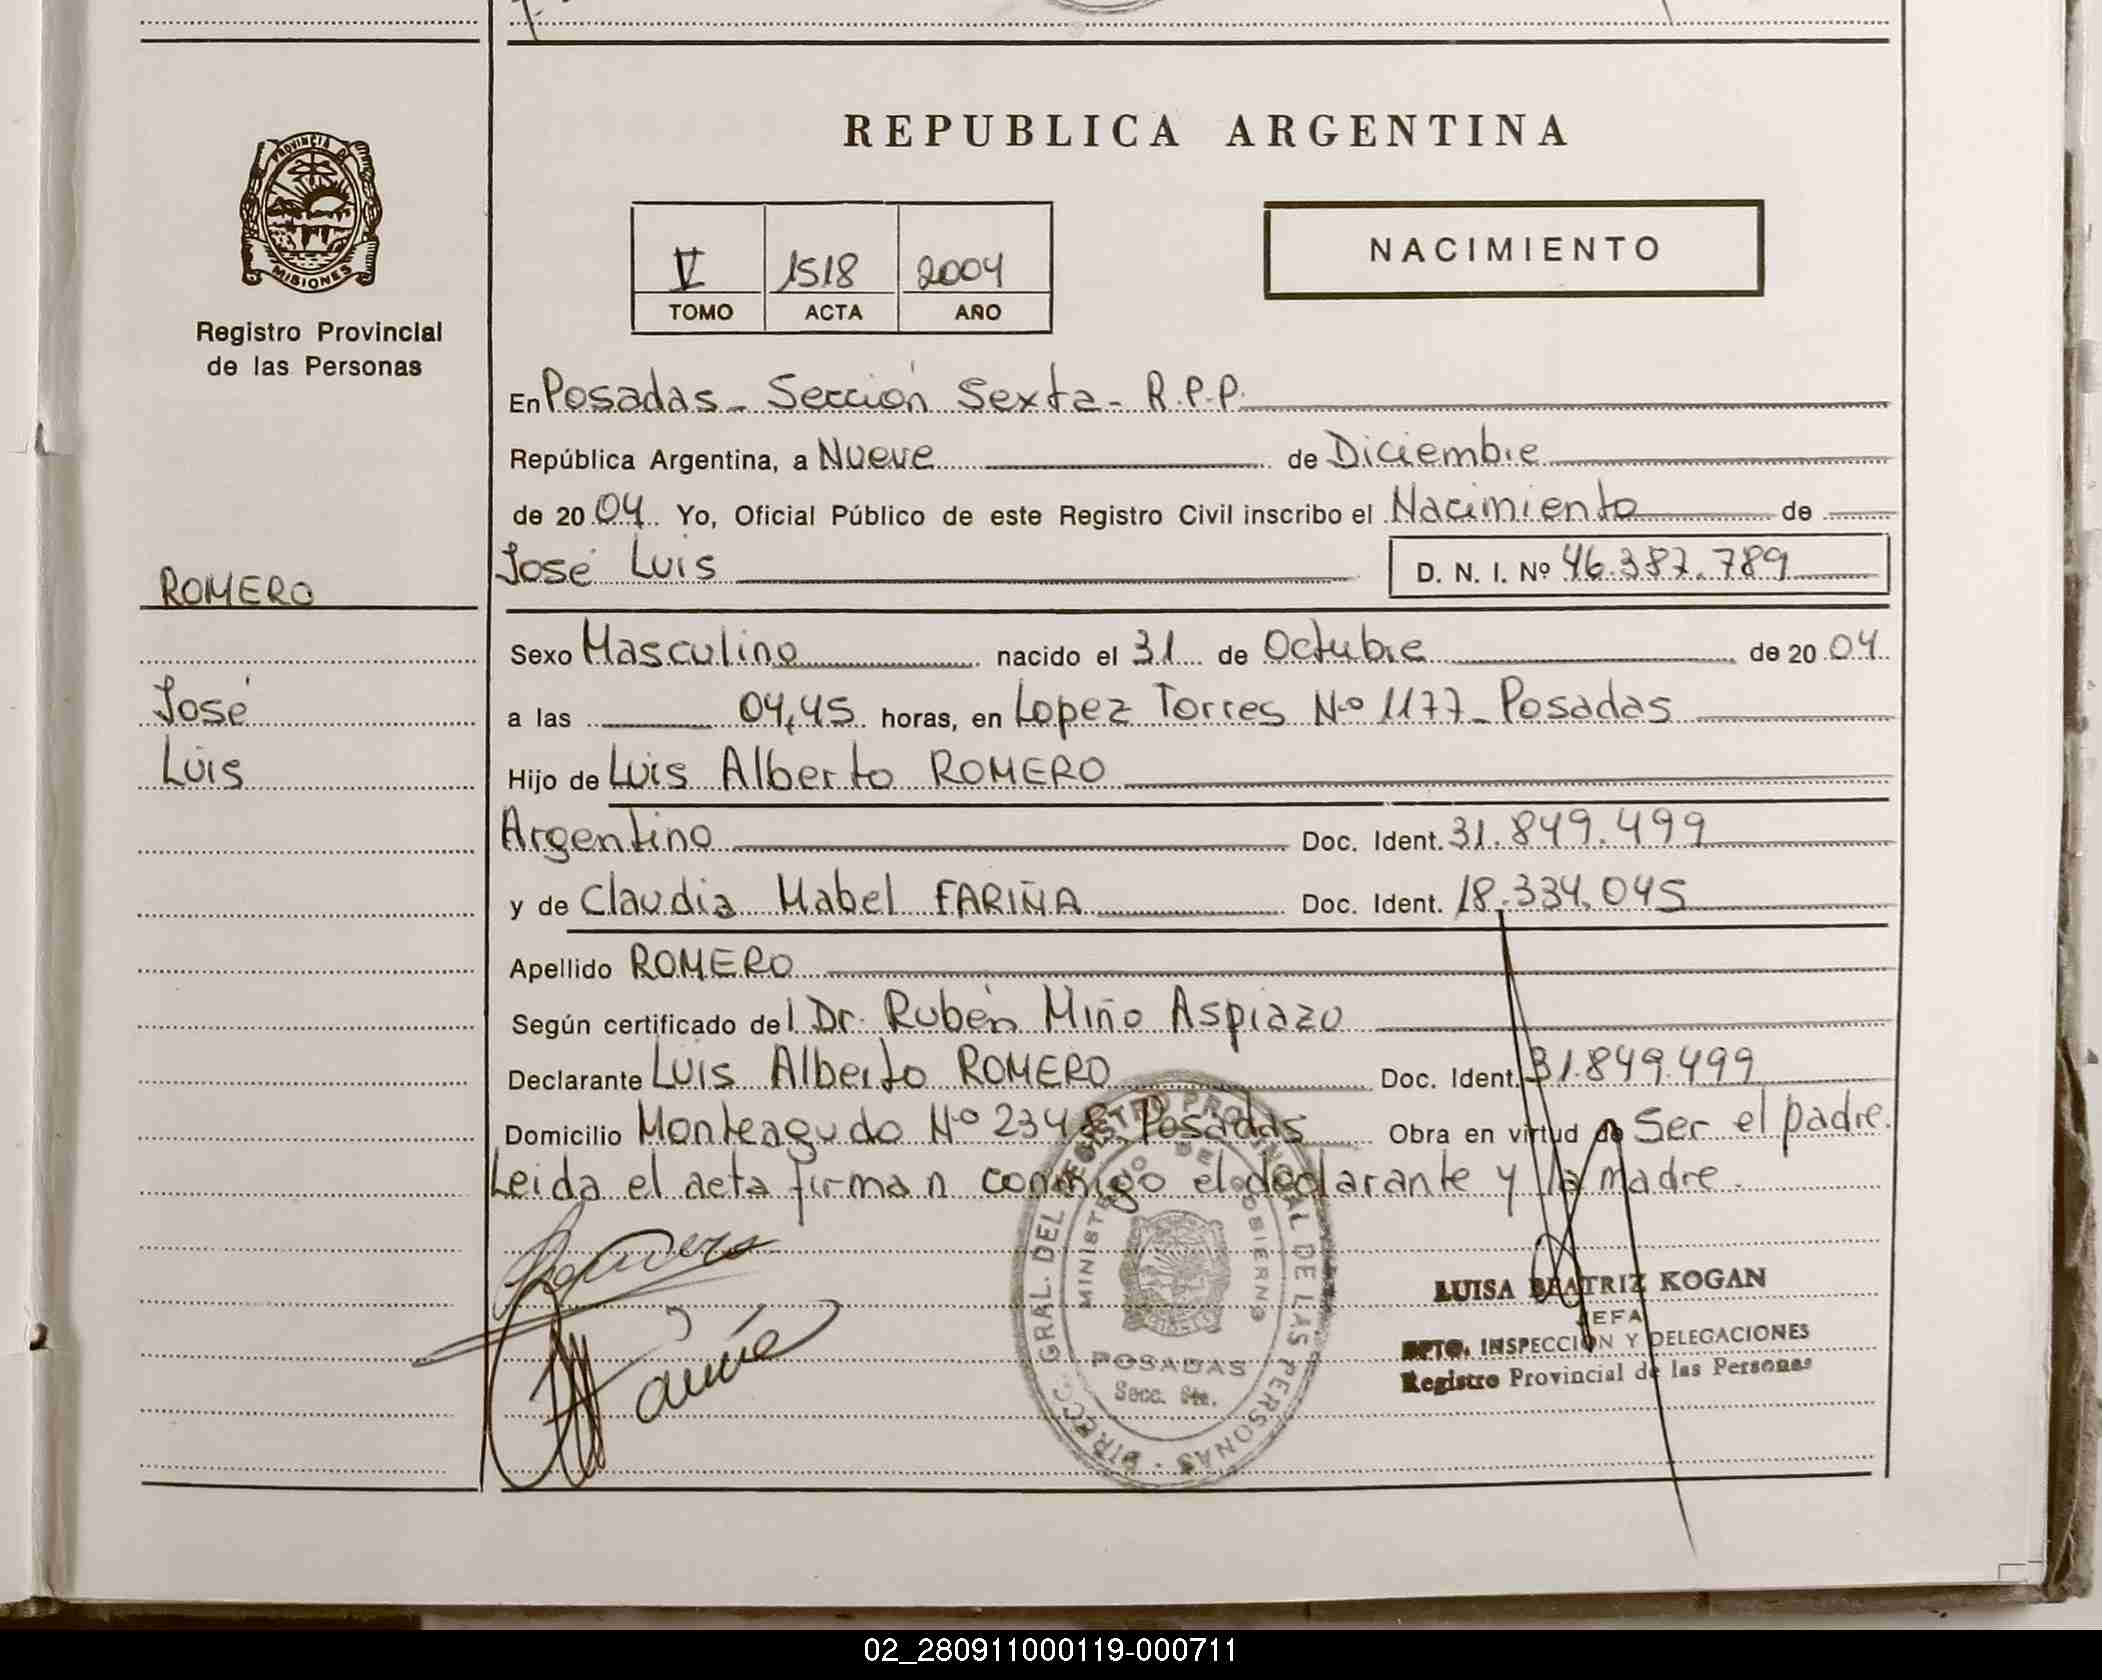 REPUBLICA ARGENTINA
PROVINCIA DE
MISIONES
Registro Provincial
de las Personas
V 1518 2004
TOMO ACTA AÑO
NACIMIENTO
En Posadas - Sección Sexta - R.P.P.
República Argentina, a Nueve de Diciembre
de 2004 Yo, Oficial Público de este Registro Civil inscribo el Nacimiento de
José Luis D. N. I. Nº 46.387.789
ROMERO
José
Luis
Sexo Masculino nacido el 31 de Octubre de 2004
a las 04,45 horas, en Lopez Torres Nº 1177 - Posadas
Hijo de Luis Alberto ROMERO
Argentino Doc. Ident. 31.849.499
y de Claudia Mabel FARIÑA Doc. Ident. 18.334.045
Apellido ROMERO
Según certificado del Dr. Rubén Miño Aspiazu
Declarante Luis Alberto ROMERO Doc. Ident. 31.849.499
Domicilio Monteagudo Nº Posadas Obra en virtud de Ser el padre.
Leida el acta firman conmigo el declarante y la madre.
Romero
Fariña
DIRECC. GRAL. DEL REGISTRO PROVINCIAL DE LAS PERSONAS
MINISTERIO DE GOBIERNO
POSADAS
Secc. 6ta.
LUISA BEATRIZ KOGAN
JEFA
DPTO. INSPECCION Y DELEGACIONES
Registro Provincial de las Personas
02_280911000119-000711